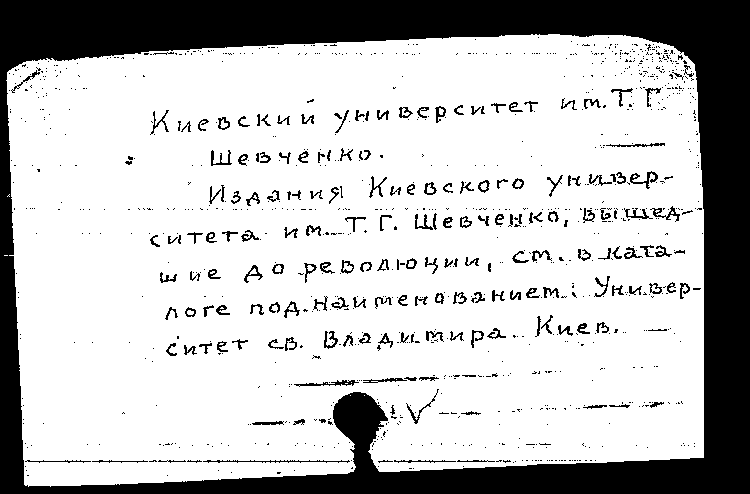 Киевский университет им. Т. Г.
Шевченко.
Издания Киевского универ-
ситета им. Т. Г. Шевченко, вышед-
шие до революции, см. в ката-
логе под наименованием: Универ-
ситет св. Владимира. Киев.